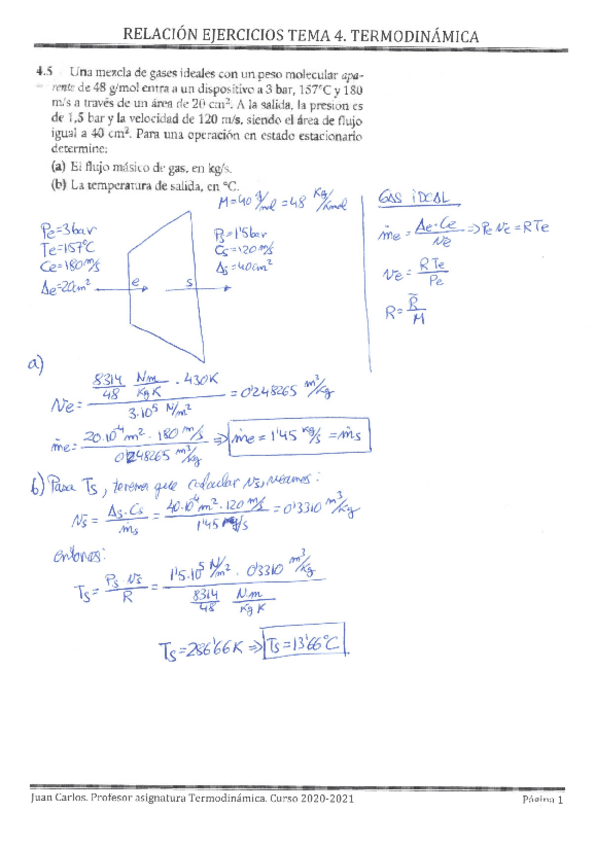 RELACIÓN EJERCICIOS TEMA 4. TERMODINÁMICA
4.5 Una mezcla de gases ideales con un peso molecular apa-
rente de 48 g/mol entra a un dispositivo a 3 bar, 157°C y 180
m/s a través de un área de 20 cm². A la salida, la presión es
de 1,5 bar y la velocidad de 120 m/s, siendo el área de flujo
igual a 40 cm². Para una operación en estado estacionario
determine:
(a) El flujo másico de gas, en kg/s.
(b) La temperatura de salida, en °C.
M=40 g/mol = 48 Kg/Kmol
Pe=3bar
Te=157°C
Ce=180 m/s
Ae=20cm²
e
s
Ps=1'5bar
Cs=120 m/s
As=40cm²
GAS IDEAL
ṁe = Ae·Ce/Ne => Pe Ne = RTe
Ne = RTe/Pe
R = R̃/M
a)
Ne = (8314/48 Nm/KgK · 430K)/(3·10⁵ N/m²) = 0'248265 m³/kg
ṁe = (20·10⁻⁴ m² · 180 m/s)/(0'248265 m³/kg) => ṁe = 1'45 kg/s = ṁs
b) Para Ts, tenemos que calcular Ns, veamos:
Ns = As·Cs/ṁs = (40·10⁻⁴ m² · 120 m/s)/(1'45 kg/s) = 0'3310 m³/kg
entonces:
Ts = Ps·Ns/R = (1'5·10⁵ N/m² · 0'3310 m³/kg)/(8314/48 Nm/KgK)
Ts = 286'66K => Ts = 13'66°C
Juan Carlos. Profesor asignatura Termodinámica. Curso 2020-2021
Página 1